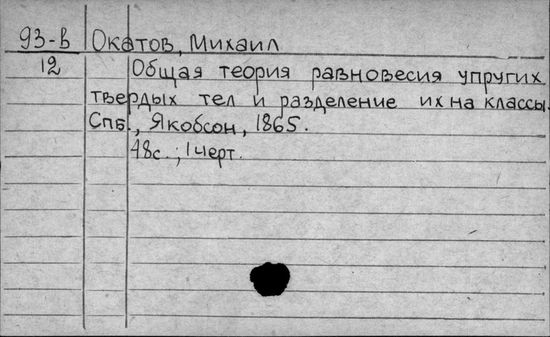 93-в Окатов, Михаил
12 Общая теория равновесия упругих
твердых тел и разделение их на классы.
Спб., Якобсон, 1865.
48с.; 1 черт.